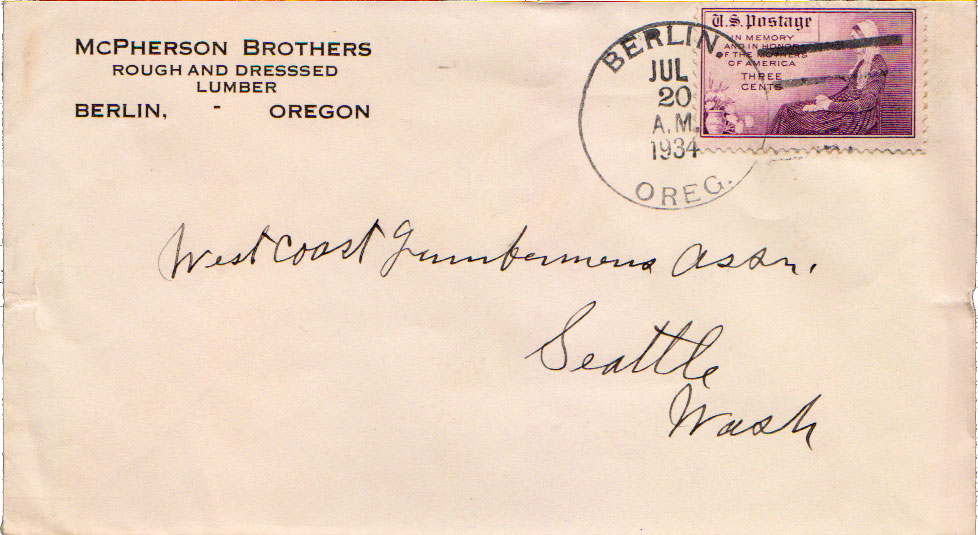 McPherson Brothers
ROUGH AND DRESSSED
LUMBER
BERLIN, - OREGON
BERLIN,
JUL
20
A.M.
1934
OREG.
U.S. Postage
IN MEMORY
AND IN HONOR
OF THE MOTHERS
OF AMERICA
THREE
CENTS
West Coast Lumbermens Assn.
Seattle
Wash